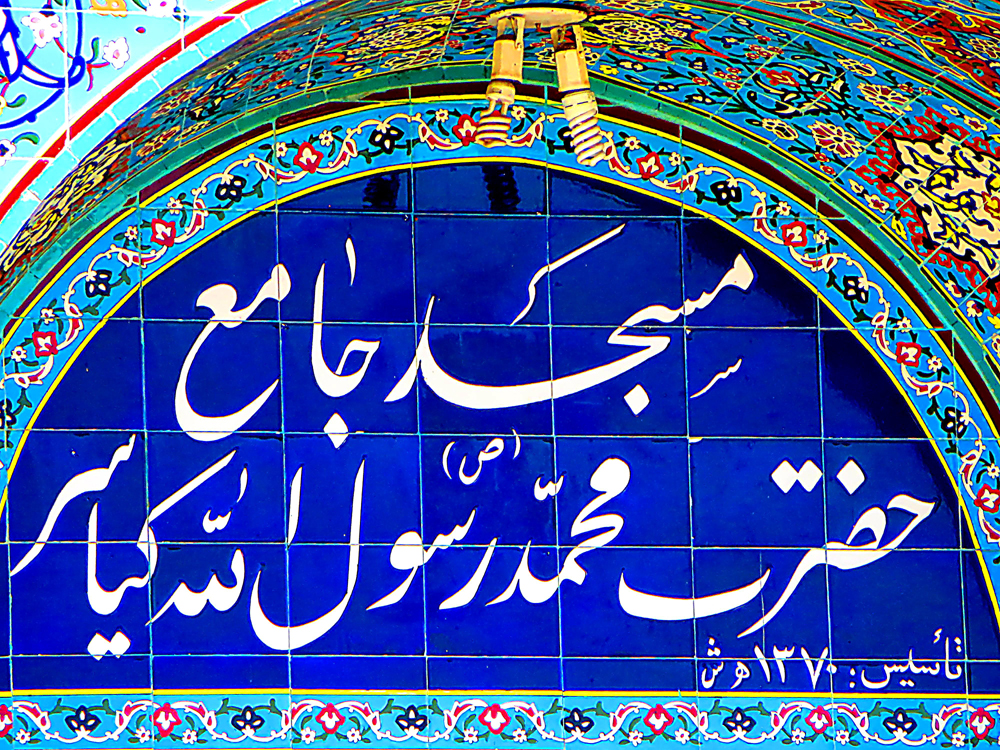 مسجد جامع
حضرت محمّد رسول اللّه (ص) کیاسر
تأسیس: ۱۳۷۰ ه ش